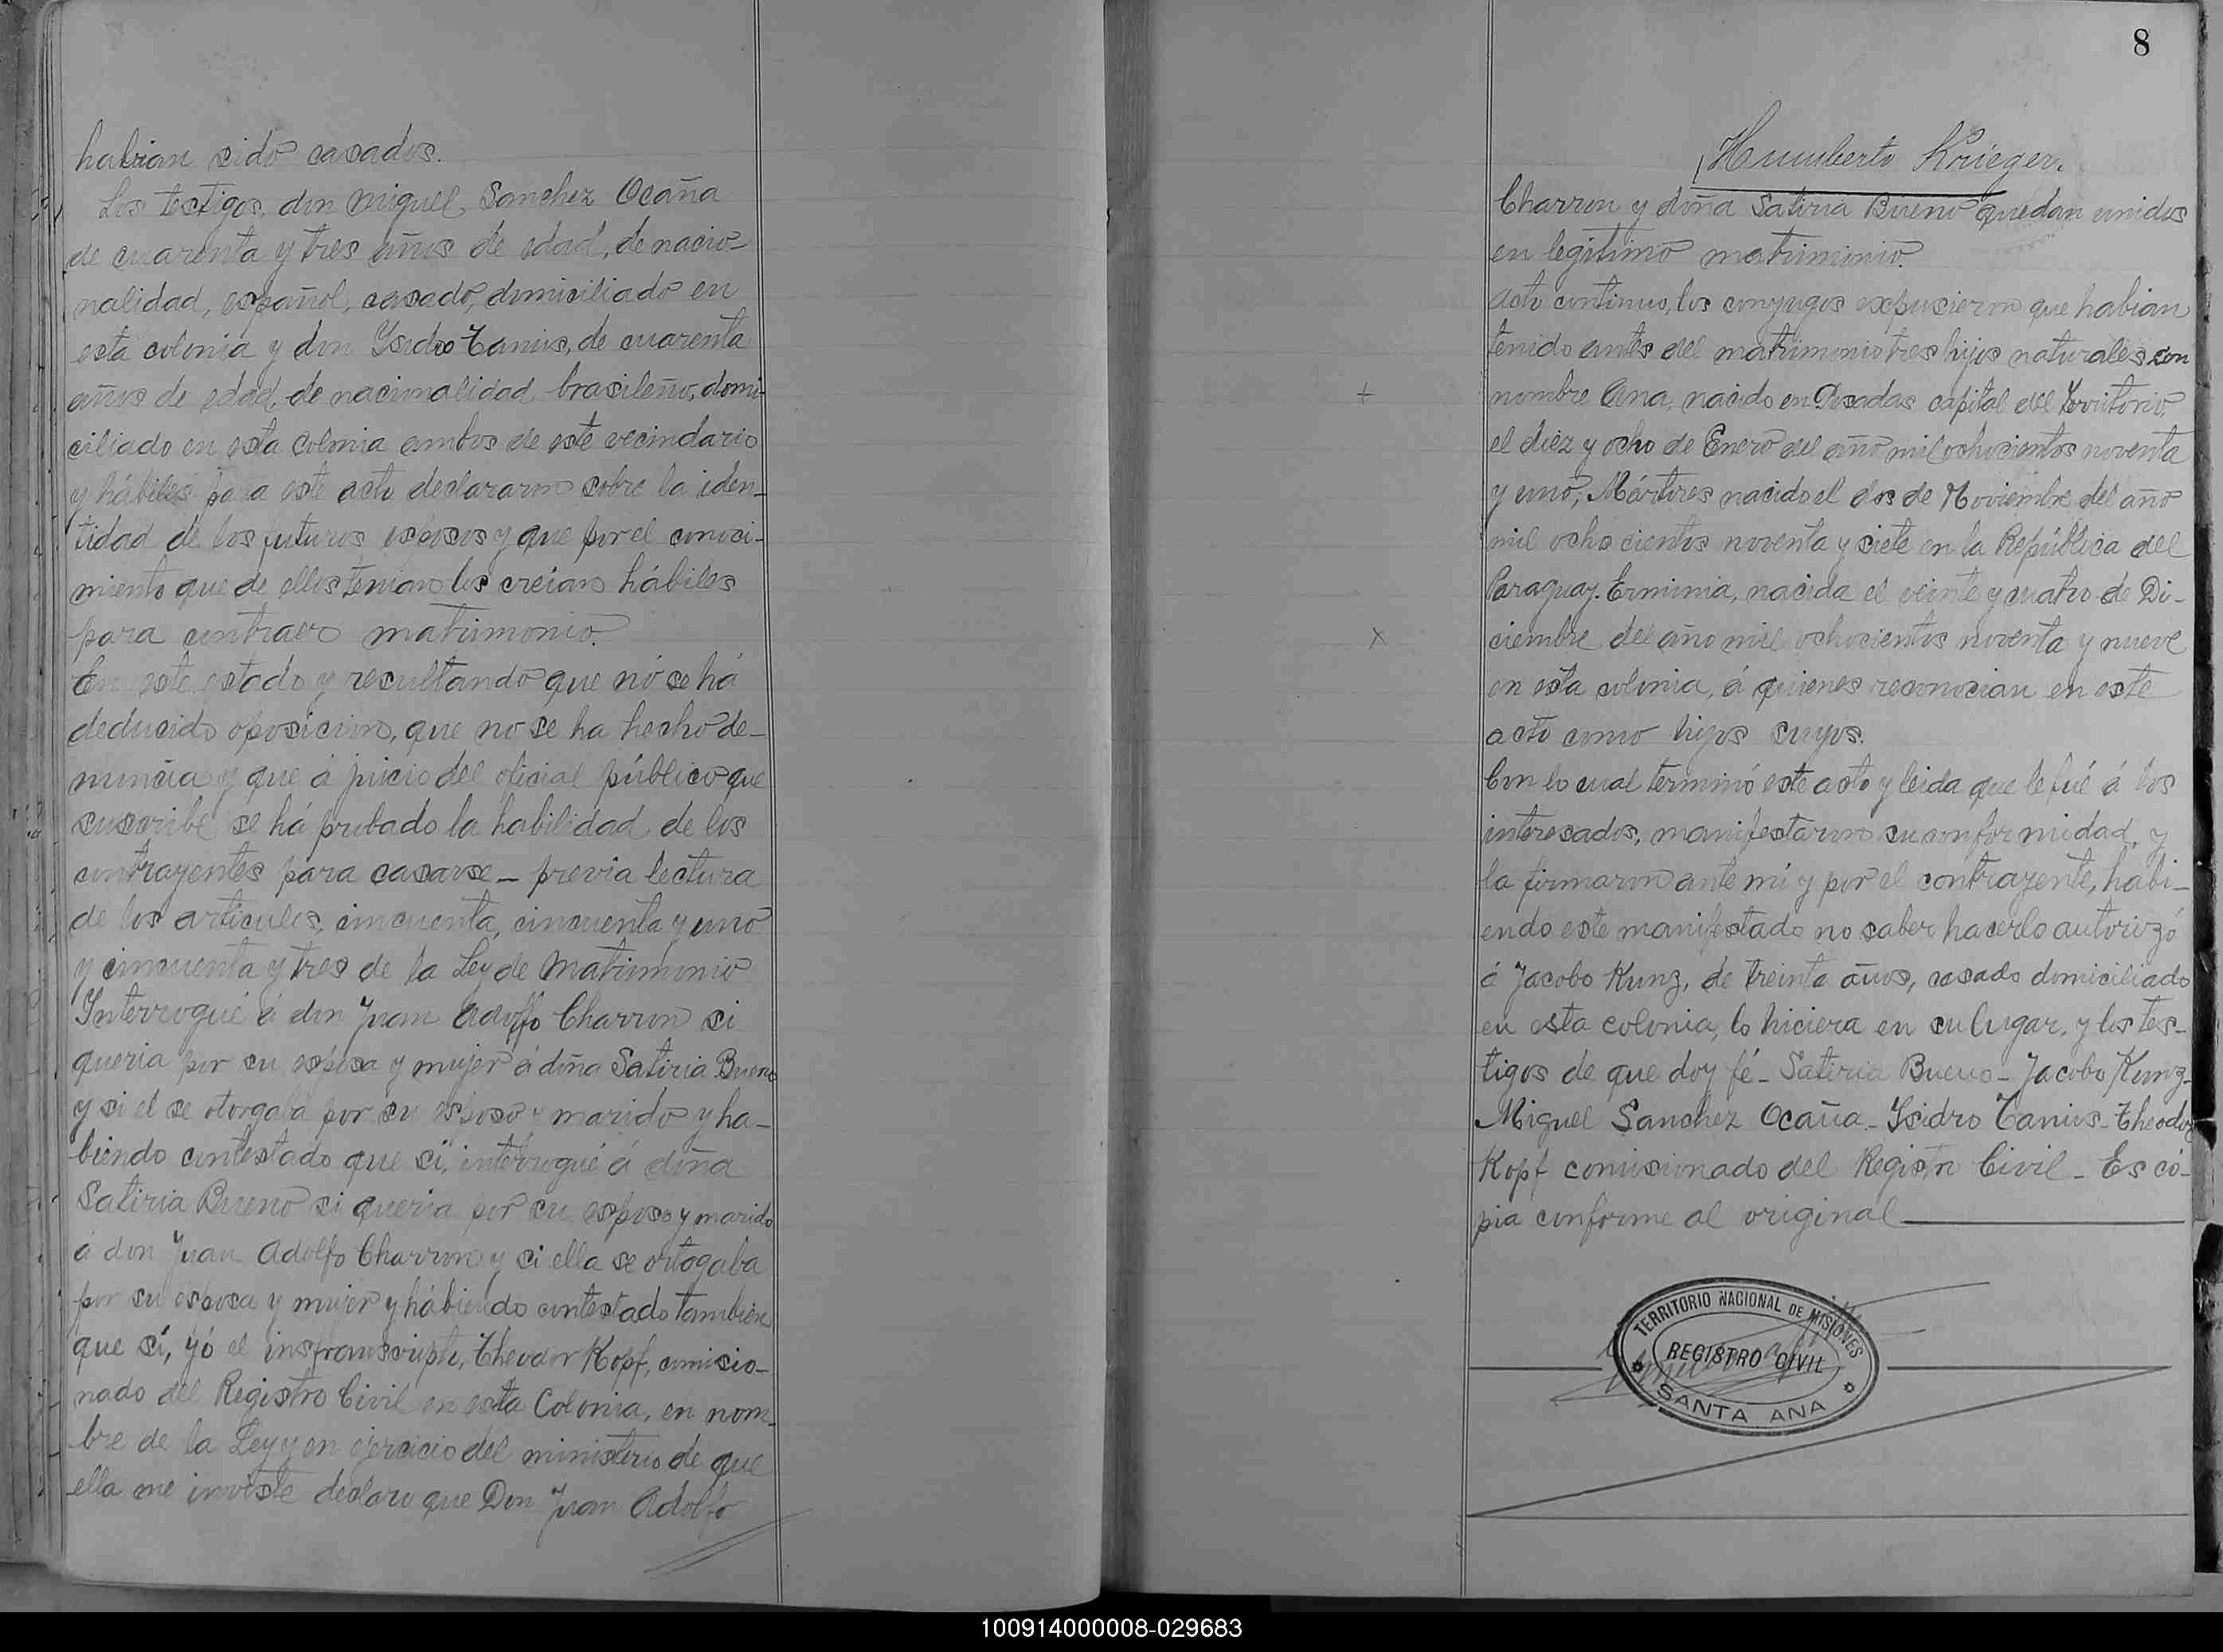 habian sido casados.
Los testigos, don Miguel Sanchez Ocaña
de cuarenta y tres años de edad, de nacio-
nalidad, español, casado, domiciliado en
esta colonia y don Ysidro Tanius, de cuarenta
años de edad, de nacionalidad brasileño, domi-
ciliado en esta Colonia ambos de este vecindario
y hábiles para este acto declararon sobre la iden-
tidad de los futuros esposos y que por el conoci-
miento que de ellos tenian los creian hábiles
para contraer matrimonio.
En este estado y resultando que nó se há
deducido oposicion, que no se ha hecho de-
nuncia y que á juicio del oficial público que
suscribe se há probado la habilidad de los
contrayentes para casarse _ previa lectura
de los articulos, cincuenta, cincuenta y uno
y cincuenta y tres de la Ley de Matrimonio
Interrogué á don Juan Adolfo Charron si
queria por su esposa y mujer á doña Satiria Bueno
y si el se otorgaba por su esposo y marido y ha-
biendo contestado que sí, interrogué á doña
Satiria Bueno si queria por su esposo y marido
á don Juan Adolfo Charron y si ella se ortogaba
por su esposa y mujer y habiendo contestado tambien
que sí, yó el insfranscripto, Theodor Kopf, comisio-
nado del Registro Civil en esta Colonia, en nom-
bre de la Ley y en ejercicio del ministerio de que
ella me inviste declaro que Don Juan Adolfo
8
Humberto Krieger.
Charron y doña Satiria Bueno quedan unidos
en legitimo matrimonio.
Acto continuo, los conyugos expusieron que habian
tenido antes del matrimonio tres hijos naturales con
+ nombre Ana, nacido en Posadas capital del Territorio,
el diez y ocho de Enero del año mil ochocientos noventa
y uno, Mártires nacido el dos de Noviembre del año
mil ochocientos noventa y siete en la República del
Paraguay. Erminia, nacida el veinte y cuatro de Di-
x ciembre del año mil ochocientos noventa y nueve
en esta colonia, á quienes reconocian en este
acto como hijos suyos.
Con lo cual terminó este acto y leida que le fué á los
interesados, manifestaron su conformidad, y
la firmaron ante mí y por el contrayente, habi-
endo este manifestado no saber hacerlo autorizó
á Jacobo Kunz, de treinta años, casado domiciliado
en esta colonia, lo hiciera en su lugar, y los tes-
tigos de que doy fé _ Satiria Bueno _ Jacobo Kunz _
Miguel Sanchez Ocaña _ Ysidro Tanius _ Theodor
Kopf comisionado del Registro Civil _ Es có-
pia conforme al original
TERRITORIO NACIONAL DE MISIONES
REGISTRO CIVIL
SANTA ANA
100914000008-029683